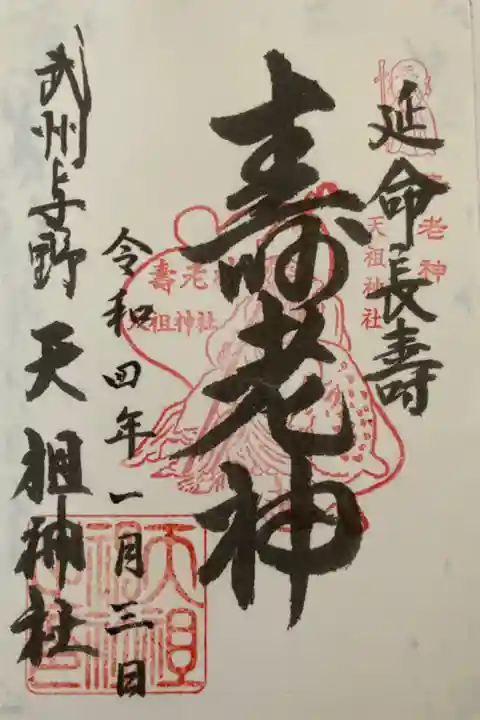 延命長壽
老神
天祖神社
壽老神
壽老神
祖神社
令和四年一月三日
武州与野 天祖神社
天祖